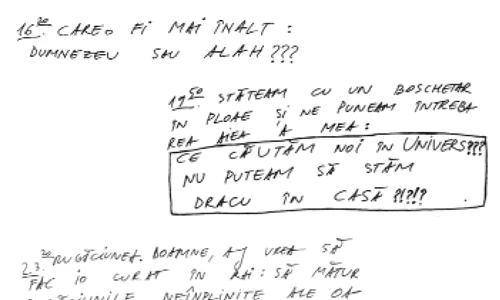 16²⁰ CAREO FI MAI ÎNALT :
DUMNEZEU SAU ALAH ???
19⁵⁰. STĂTEAM CU UN BOSCHETAR
ÎN PLOAE ȘI NE PUNEAM ÎNTREBA
REA AIEA A MEA :
CE CĂUTĂM NOI ÎN UNIVERS???
NU PUTEAM SĂ STĂM
DRACU ÎN CASĂ ?!?!?
23²⁰ RUGĂCIUNEA. DOAMNE, AȘ VREA SĂ
FAC IO CURAT ÎN RAI : SĂ MĂTUR
NEÎNPLINITE ALE OA-